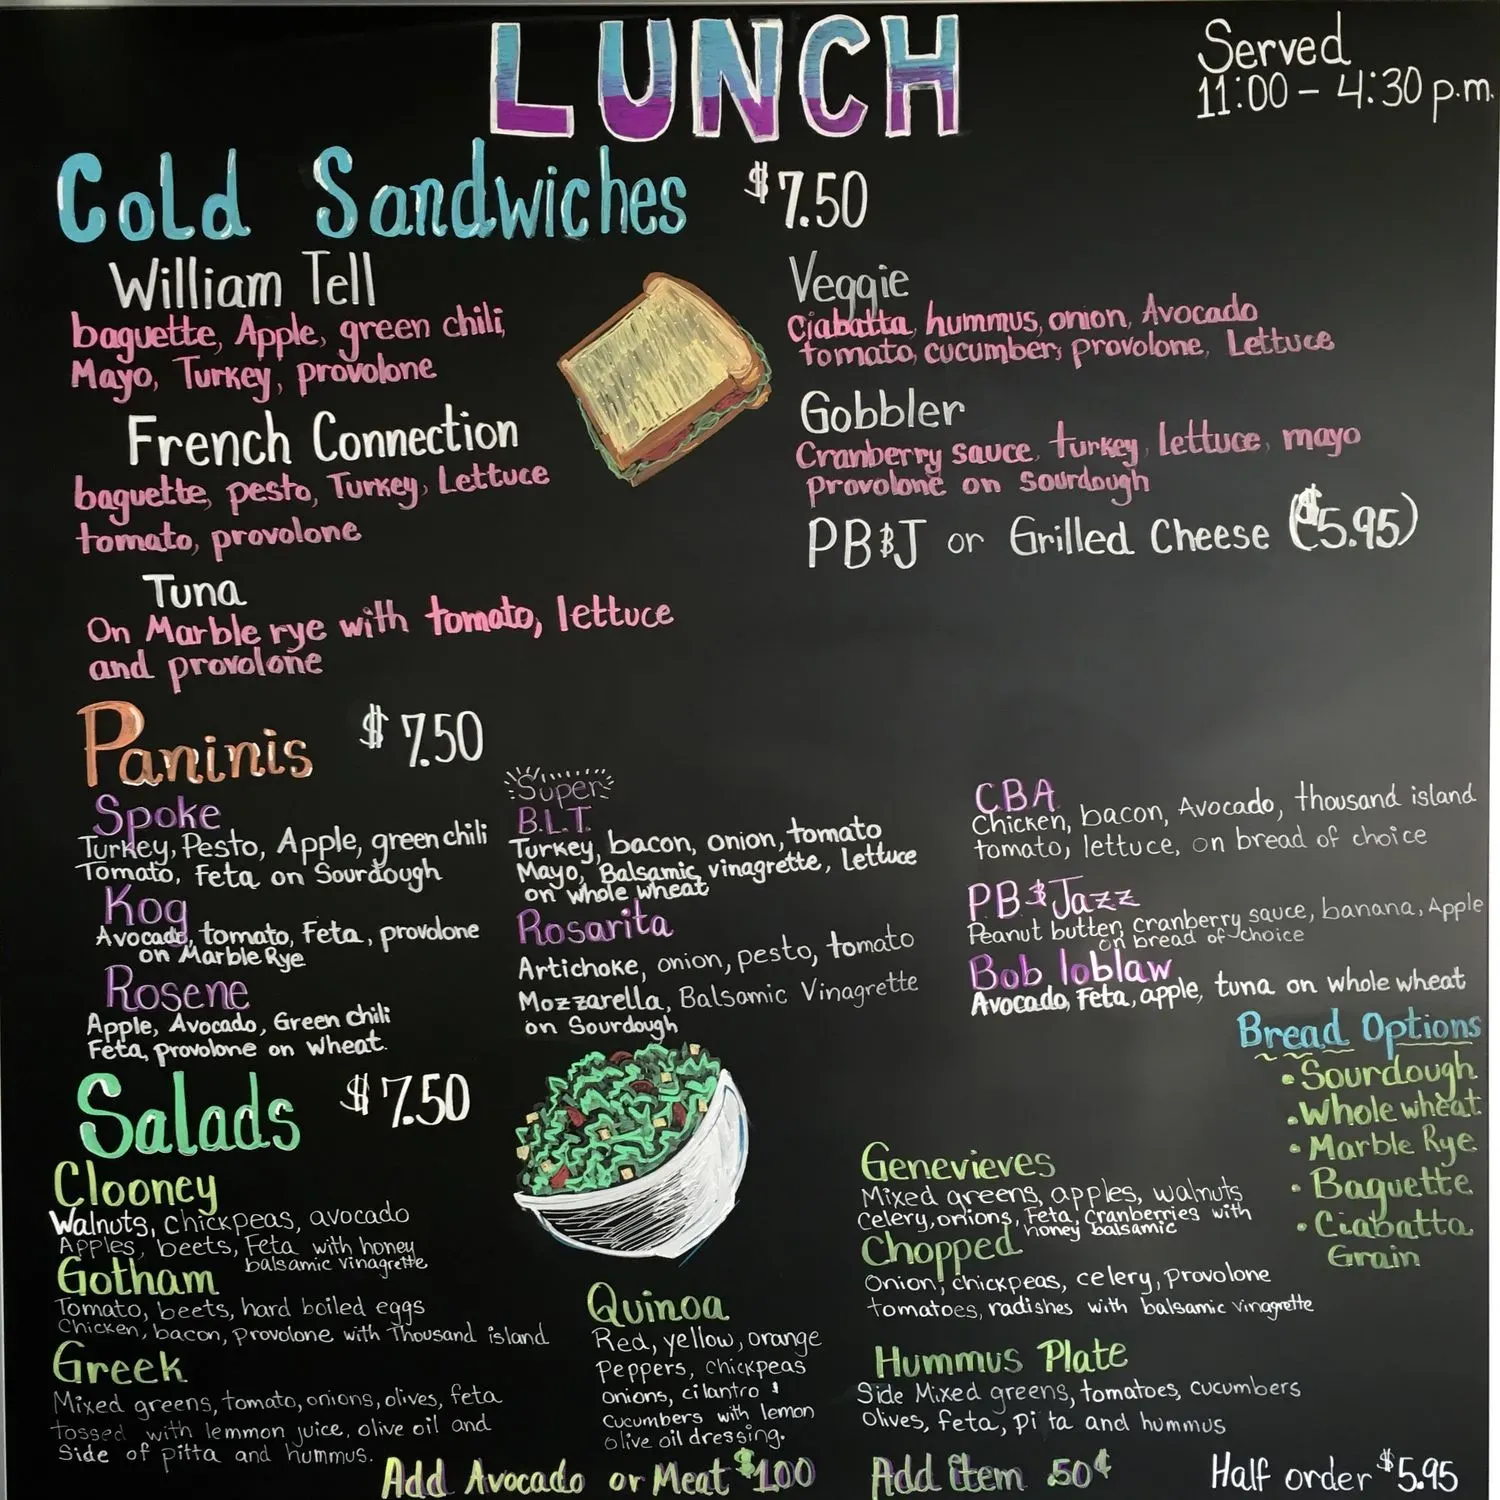 LUNCH
Served
11:00 - 4:30 p.m.
Cold Sandwiches $7.50
William Tell
baguette, Apple, green chili,
Mayo, Turkey, provolone
French Connection
baguette, pesto, Turkey, Lettuce
tomato, provolone
Tuna
On Marble rye with tomato, lettuce
and provolone
Veggie
Ciabatta, hummus, onion, Avocado
tomato, cucumber, provolone, Lettuce
Gobbler
Cranberry sauce, turkey, lettuce, mayo
provolone on sourdough
PB&J or Grilled Cheese ($5.95)
Paninis $7.50
Spoke
Turkey, Pesto, Apple, green chili
Tomato, Feta on Sourdough
Kog
Avocado, tomato, Feta, provolone
on Marble Rye
Rosene
Apple, Avocado, Green chili
Feta, provolone on wheat.
Super
B.L.T.
Turkey, bacon, onion, tomato
Mayo, Balsamic vinagrette, lettuce
on whole wheat
Rosarita
Artichoke, onion, pesto, tomato
Mozzarella, Balsamic Vinagrette
on Sourdough
CBA
Chicken, bacon, Avocado, thousand island
tomato, lettuce, on bread of choice
PB&Jazz
Peanut butter, cranberry sauce, banana, Apple
on bread of choice
Bob loblaw
Avocado, Feta, apple, tuna on whole wheat
Bread Options
• Sourdough
• Whole wheat
• Marble Rye
• Baguette
• Ciabatta
Grain
Salads $7.50
Clooney
Walnuts, chickpeas, avocado
Apples, beets, Feta with honey
balsamic vinagrette
Gotham
Tomato, beets, hard boiled eggs
Chicken, bacon, provolone with Thousand island
Greek
Mixed greens, tomato, onions, olives, feta
tossed with lemmon juice, olive oil and
Side of pitta and hummus.
Quinoa
Red, yellow, orange
Peppers, chickpeas
onions, cilantro &
cucumbers with lemon
olive oil dressing.
Genevieves
Mixed greens, apples, walnuts
Celery, onions, Feta, Cranberries with
honey balsamic
Chopped
Onion, chickpeas, celery, provolone
tomatoes, radishes with balsamic vinagrette
Hummus Plate
Side Mixed greens, tomatoes, cucumbers
Olives, feta, pita and hummus
Add Avocado or Meat $1.00 Add item .50¢ Half order $5.95